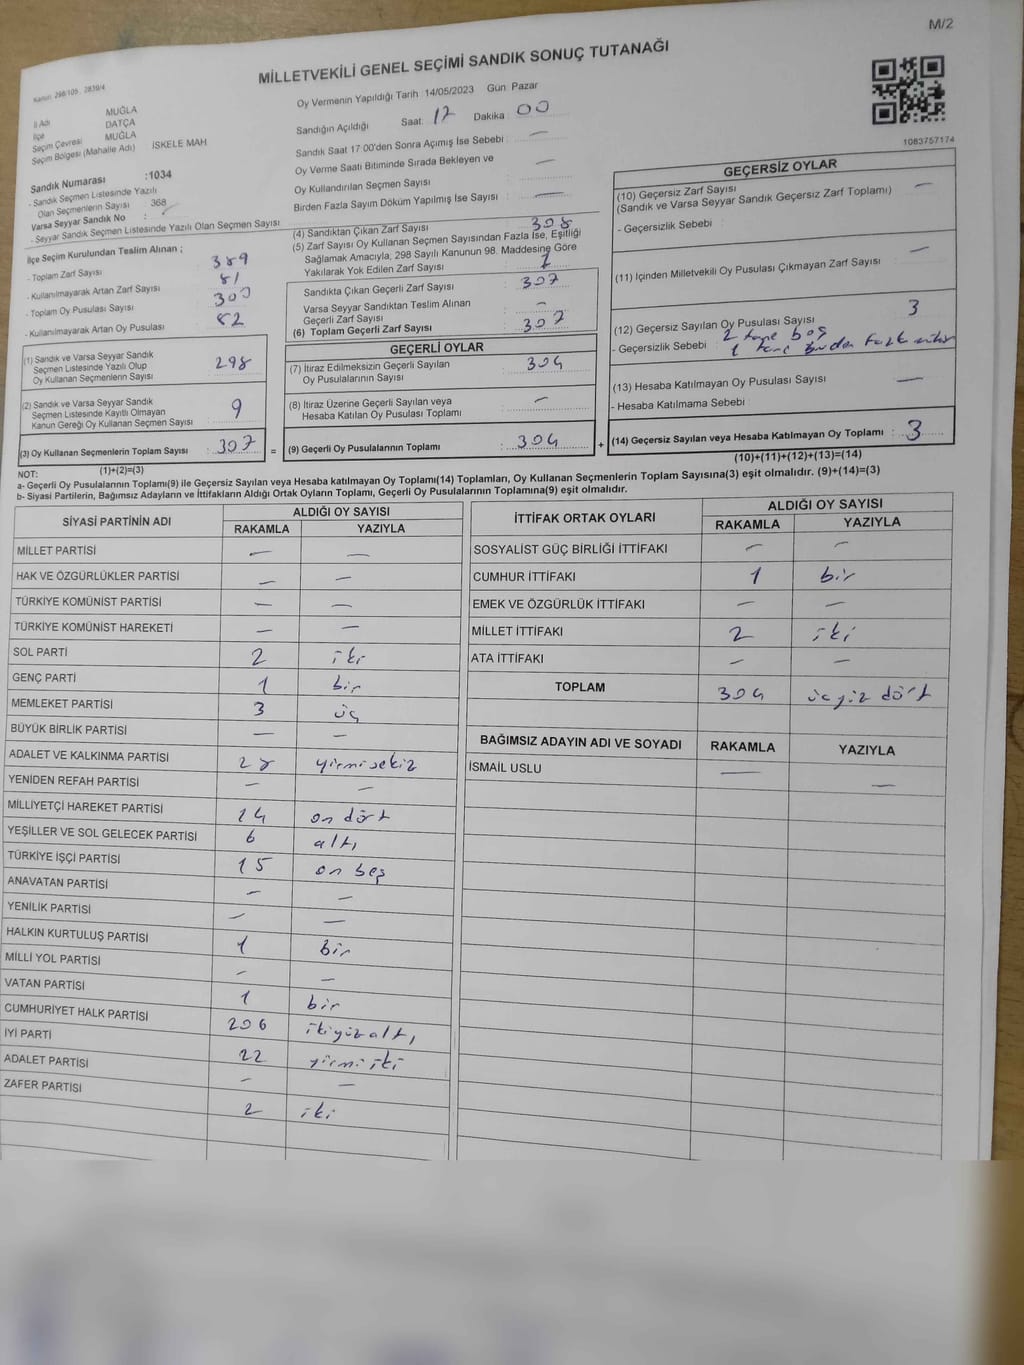 M/2
MİLLETVEKİLİ GENEL SEÇİMİ SANDIK SONUÇ TUTANAĞI
Kanun: 298/105 , 2839/4
İl Adı MUĞLA
İlçe DATÇA
Seçim Çevresi MUĞLA
Seçim Bölgesi (Mahalle Adı) İSKELE MAH
Oy Vermenin Yapıldığı Tarih :14/05/2023 Gün Pazar
Sandığın Açıldığı Saat: 17 Dakika : 00
Sandık Saat 17:00'den Sonra Açımış İse Sebebi : —
Oy Verme Saati Bitiminde Sırada Bekleyen ve
Oy Kullandırılan Seçmen Sayısı : —
Birden Fazla Sayım Döküm Yapılmış İse Sayısı : —
1083757174
Sandık Numarası :1034
- Sandık Seçmen Listesinde Yazılı
Olan Seçmenlerin Sayısı : 368
Varsa Seyyar Sandık No :
- Seyyar Sandık Seçmen Listesinde Yazılı Olan Seçmen Sayısı
İlçe Seçim Kurulundan Teslim Alınan ;
- Toplam Zarf Sayısı : 389
- Kullanılmayarak Artan Zarf Sayısı : 81
- Toplam Oy Pusulası Sayısı
- Kullanılmayarak Artan Oy Pusulası : 82
(1) Sandık ve Varsa Seyyar Sandık
Seçmen Listesinde Yazılı Olup
Oy Kullanan Seçmenlerin Sayısı : 298
(2) Sandık ve Varsa Seyyar Sandık
Seçmen Listesinde Kayıtlı Olmayan
Kanun Gereği Oy Kullanan Seçmen Sayısı : 9
(3) Oy Kullanan Seçmenlerin Toplam Sayısı : 307
(1)+(2)=(3)
(4) Sandıktan Çıkan Zarf Sayısı : 308
(5) Zarf Sayısı Oy Kullanan Seçmen Sayısından Fazla İse, Eşitliği
Sağlamak Amacıyla, 298 Sayılı Kanunun 98. Maddesine Göre
Yakılarak Yok Edilen Zarf Sayısı : 1
Sandıkta Çıkan Geçerli Zarf Sayısı : 307
Varsa Seyyar Sandıktan Teslim Alınan
Geçerli Zarf Sayısı : —
(6) Toplam Geçerli Zarf Sayısı : 307
GEÇERLİ OYLAR
(7) İtiraz Edilmeksizin Geçerli Sayılan
Oy Pusulalarının Sayısı : 304
(8) İtiraz Üzerine Geçerli Sayılan veya
Hesaba Katılan Oy Pusulası Toplamı : —
(9) Geçerli Oy Pusulalarının Toplamı : 304
GEÇERSİZ OYLAR
(10) Geçersiz Zarf Sayısı : —
(Sandık ve Varsa Seyyar Sandık Geçersiz Zarf Toplamı)
- Geçersizlik Sebebi :
(11) İçinden Milletvekili Oy Pusulası Çıkmayan Zarf Sayısı : —
(12) Geçersiz Sayılan Oy Pusulası Sayısı : 3
- Geçersizlik Sebebi : 2 tane boş
1 tane
(13) Hesaba Katılmayan Oy Pusulası Sayısı : —
- Hesaba Katılmama Sebebi :
(14) Geçersiz Sayılan veya Hesaba Katılmayan Oy Toplamı : 3
(10)+(11)+(12)+(13)=(14)
NOT:
a- Geçerli Oy Pusulalarının Toplamı(9) ile Geçersiz Sayılan veya Hesaba katılmayan Oy Toplamı(14) Toplamları, Oy Kullanan Seçmenlerin Toplam Sayısına(3) eşit olmalıdır. (9)+(14)=(3)
b- Siyasi Partilerin, Bağımsız Adayların ve İttifakların Aldığı Ortak Oyların Toplamı, Geçerli Oy Pusulalarının Toplamına(9) eşit olmalıdır.
SİYASİ PARTİNİN ADI ALDIĞI OY SAYISI
RAKAMLA YAZIYLA
MİLLET PARTİSİ — —
HAK VE ÖZGÜRLÜKLER PARTİSİ — —
TÜRKİYE KOMÜNİST PARTİSİ — —
TÜRKİYE KOMÜNİST HAREKETİ — —
SOL PARTİ 2 iki
GENÇ PARTİ 1 bir
MEMLEKET PARTİSİ 3 üç
BÜYÜK BİRLİK PARTİSİ — —
ADALET VE KALKINMA PARTİSİ 28 yirmisekiz
YENİDEN REFAH PARTİSİ — —
MİLLİYETÇİ HAREKET PARTİSİ 14 on dört
YEŞİLLER VE SOL GELECEK PARTİSİ 6 altı
TÜRKİYE İŞÇİ PARTİSİ 15 on beş
ANAVATAN PARTİSİ — —
YENİLİK PARTİSİ — —
HALKIN KURTULUŞ PARTİSİ 1 bir
MİLLİ YOL PARTİSİ — —
VATAN PARTİSİ 1 bir
CUMHURİYET HALK PARTİSİ 206 ikiyüz altı
İYİ PARTİ 22 yirmi iki
ADALET PARTİSİ — —
ZAFER PARTİSİ 2 iki
İTTİFAK ORTAK OYLARI ALDIĞI OY SAYISI
RAKAMLA YAZIYLA
SOSYALİST GÜÇ BİRLİĞİ İTTİFAKI — —
CUMHUR İTTİFAKI 1 bir
EMEK VE ÖZGÜRLÜK İTTİFAKI — —
MİLLET İTTİFAKI 2 iki
ATA İTTİFAKI — —
TOPLAM 304 üçyüz dört
BAĞIMSIZ ADAYIN ADI VE SOYADI RAKAMLA YAZIYLA
İSMAİL USLU — —